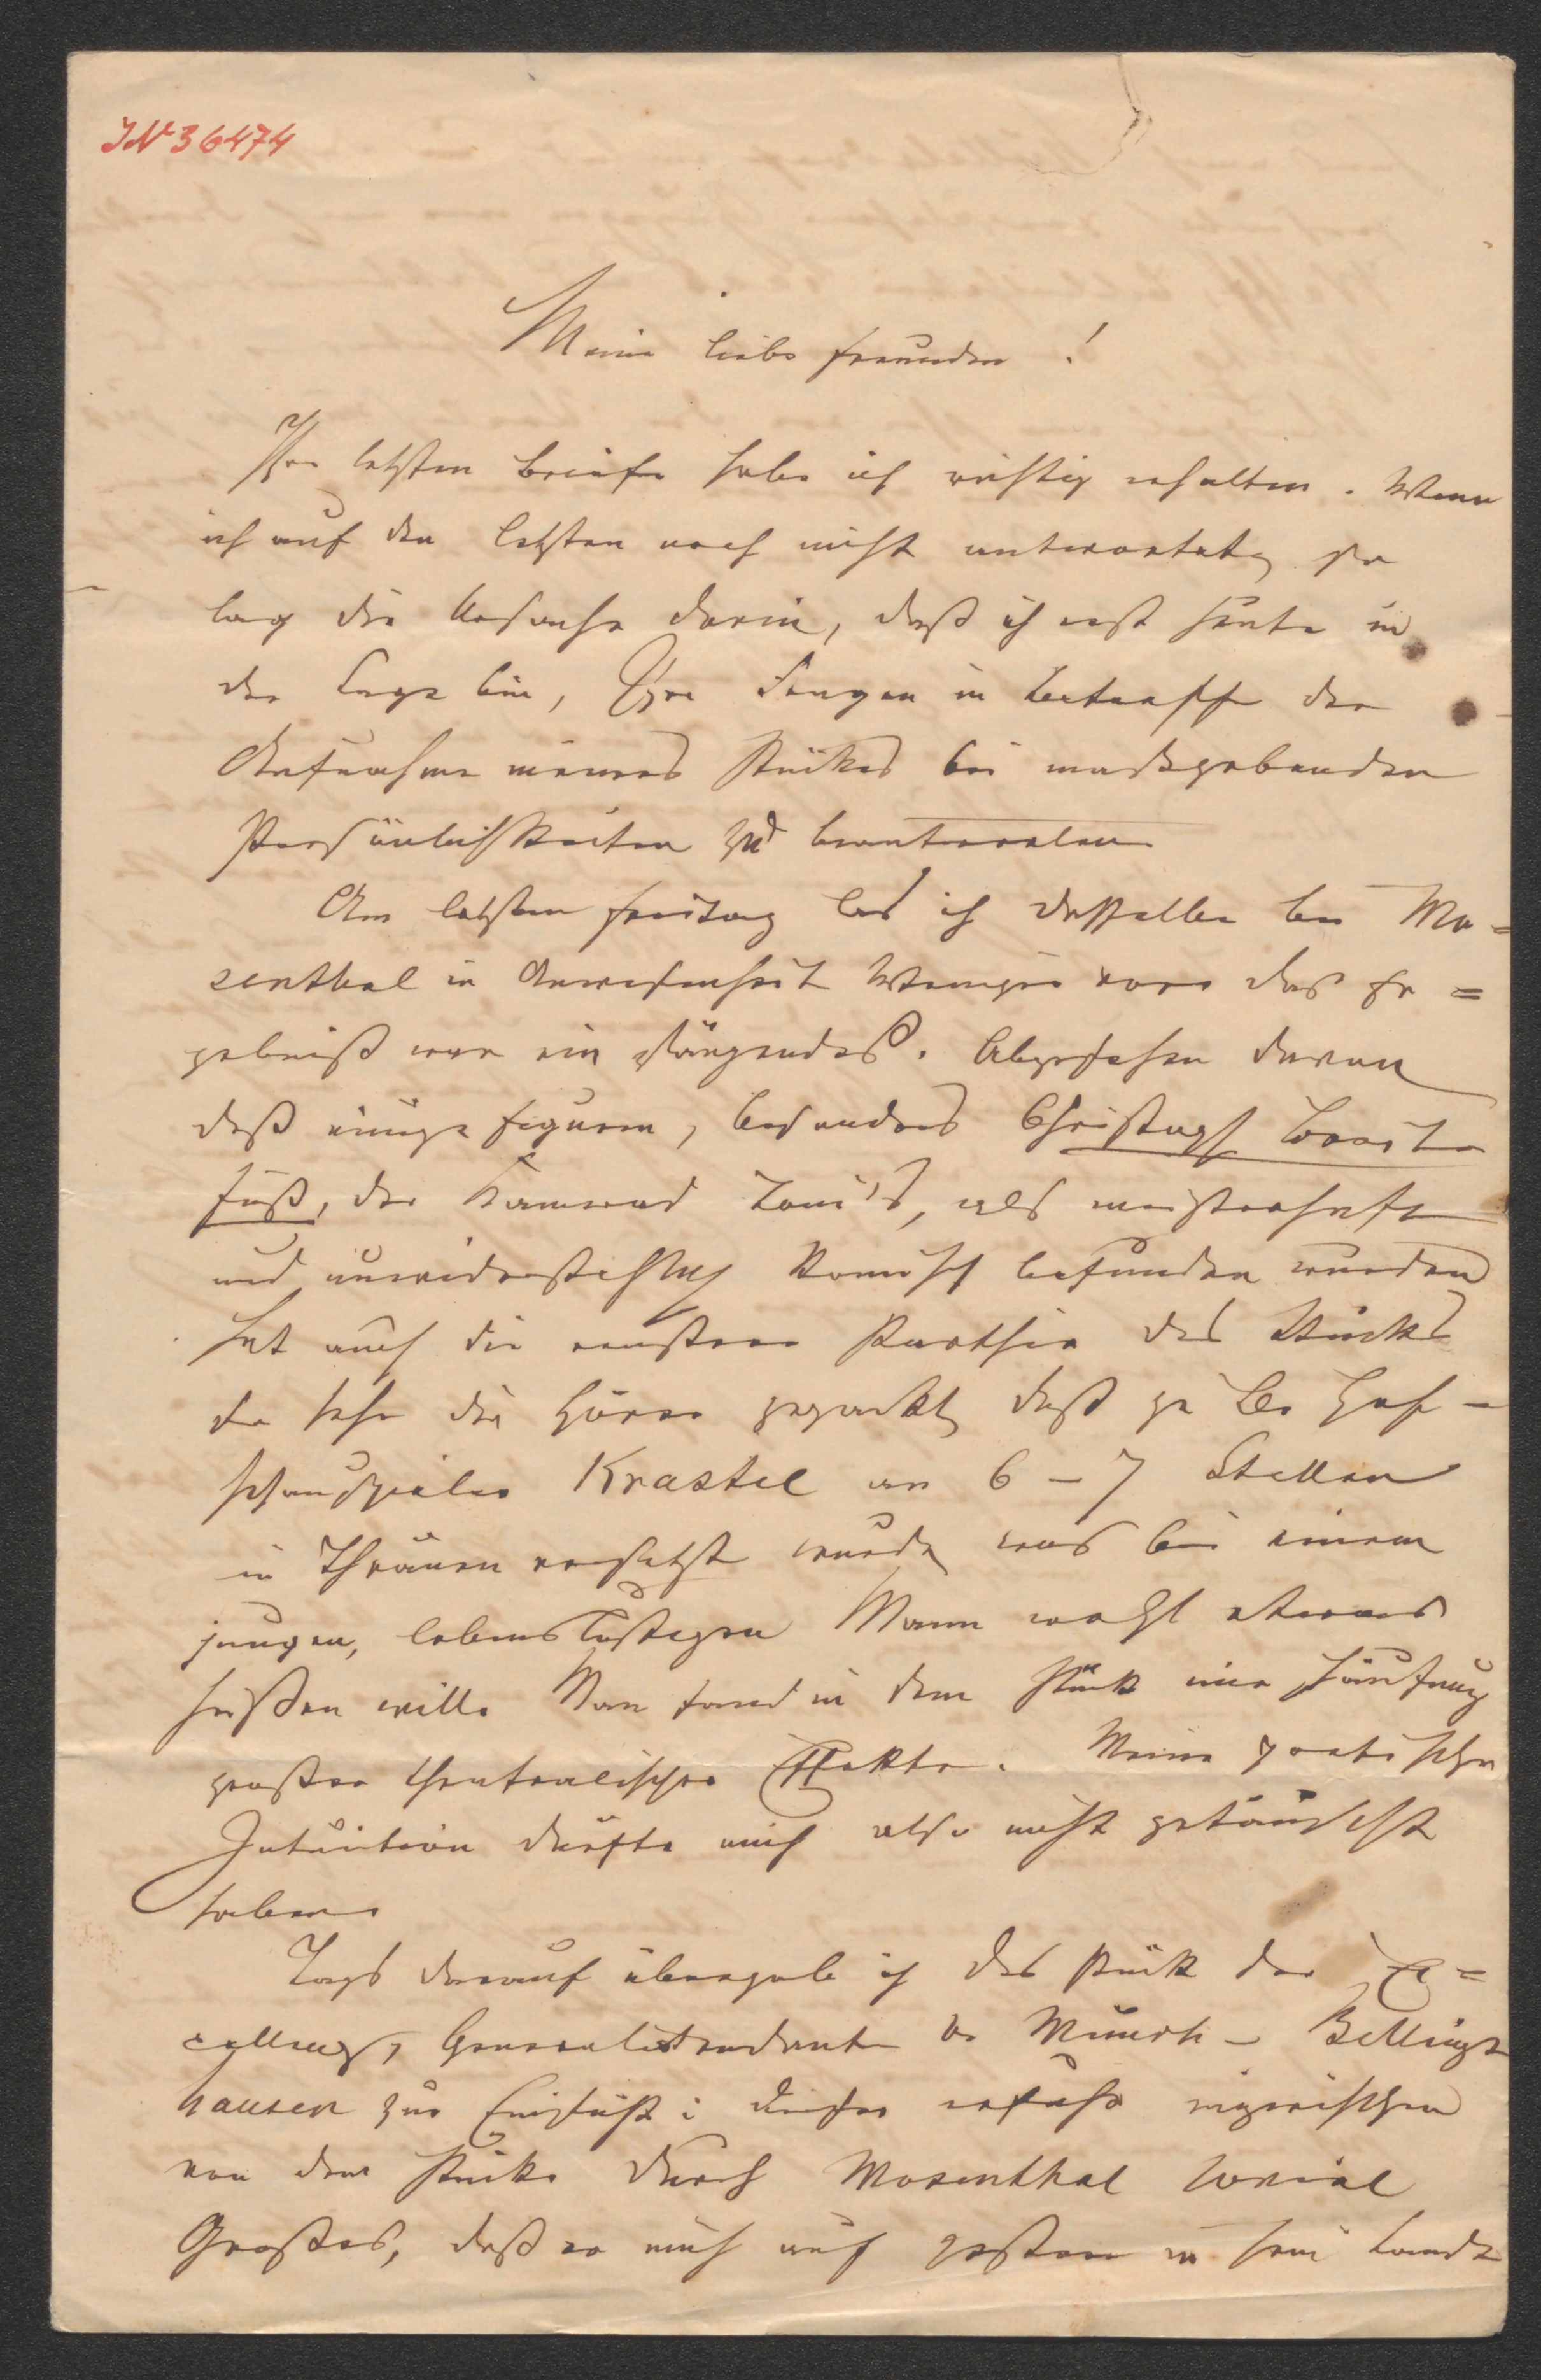 IN 36474
Meine liebe Freunden!
Ihre letzten Briefe habe ich richtig erhalten. Wenn
ich auf den letzten noch nicht antwortete, so
lag die Ursache darin, daß ich erst heute in
der Lage bin, Ihre Fragen in Betreff der
Aufnahme meines Stückes bei maßgebenden
Persönlichkeiten zu beantworten.
Am letzten Freitag las ich dasselbe bei Mo=
senthal in Anwesenheit Weniger vor. Das Er=
gebniß war ein glänzendes. Abgesehen davon
daß einige Figuren, besonders Christoph Breit
fuß, der Kamerad Toni's, als meisterhaft
und unwiderstehlich komisch befunden wurden
hat auch die ernstere Parthie des Stücks
so sehr die Hörer gepackt, daß z. B. Hof-
schauspieler Krastel an 6 – 7 Stellen
in Thränen versetzt wurde, was bei einem
jungen, lebenslustigen Mann wohl etwas
heißen will. Man fand in dem Stück eine Häufung
großer theatralischer Effekte. Meine poetische
Intuition dürfte mich also nicht getäuscht
haben.
Tags darauf übergab ich das Stück der Ex=
cellenz, Generalintendant v. Münch-Bellings
hausen zur Einsicht; dieser erfuhr inzwischen
von dem Stücke durch Mosenthal soviel
Großes, daß er mich auf gestern in sein Landh